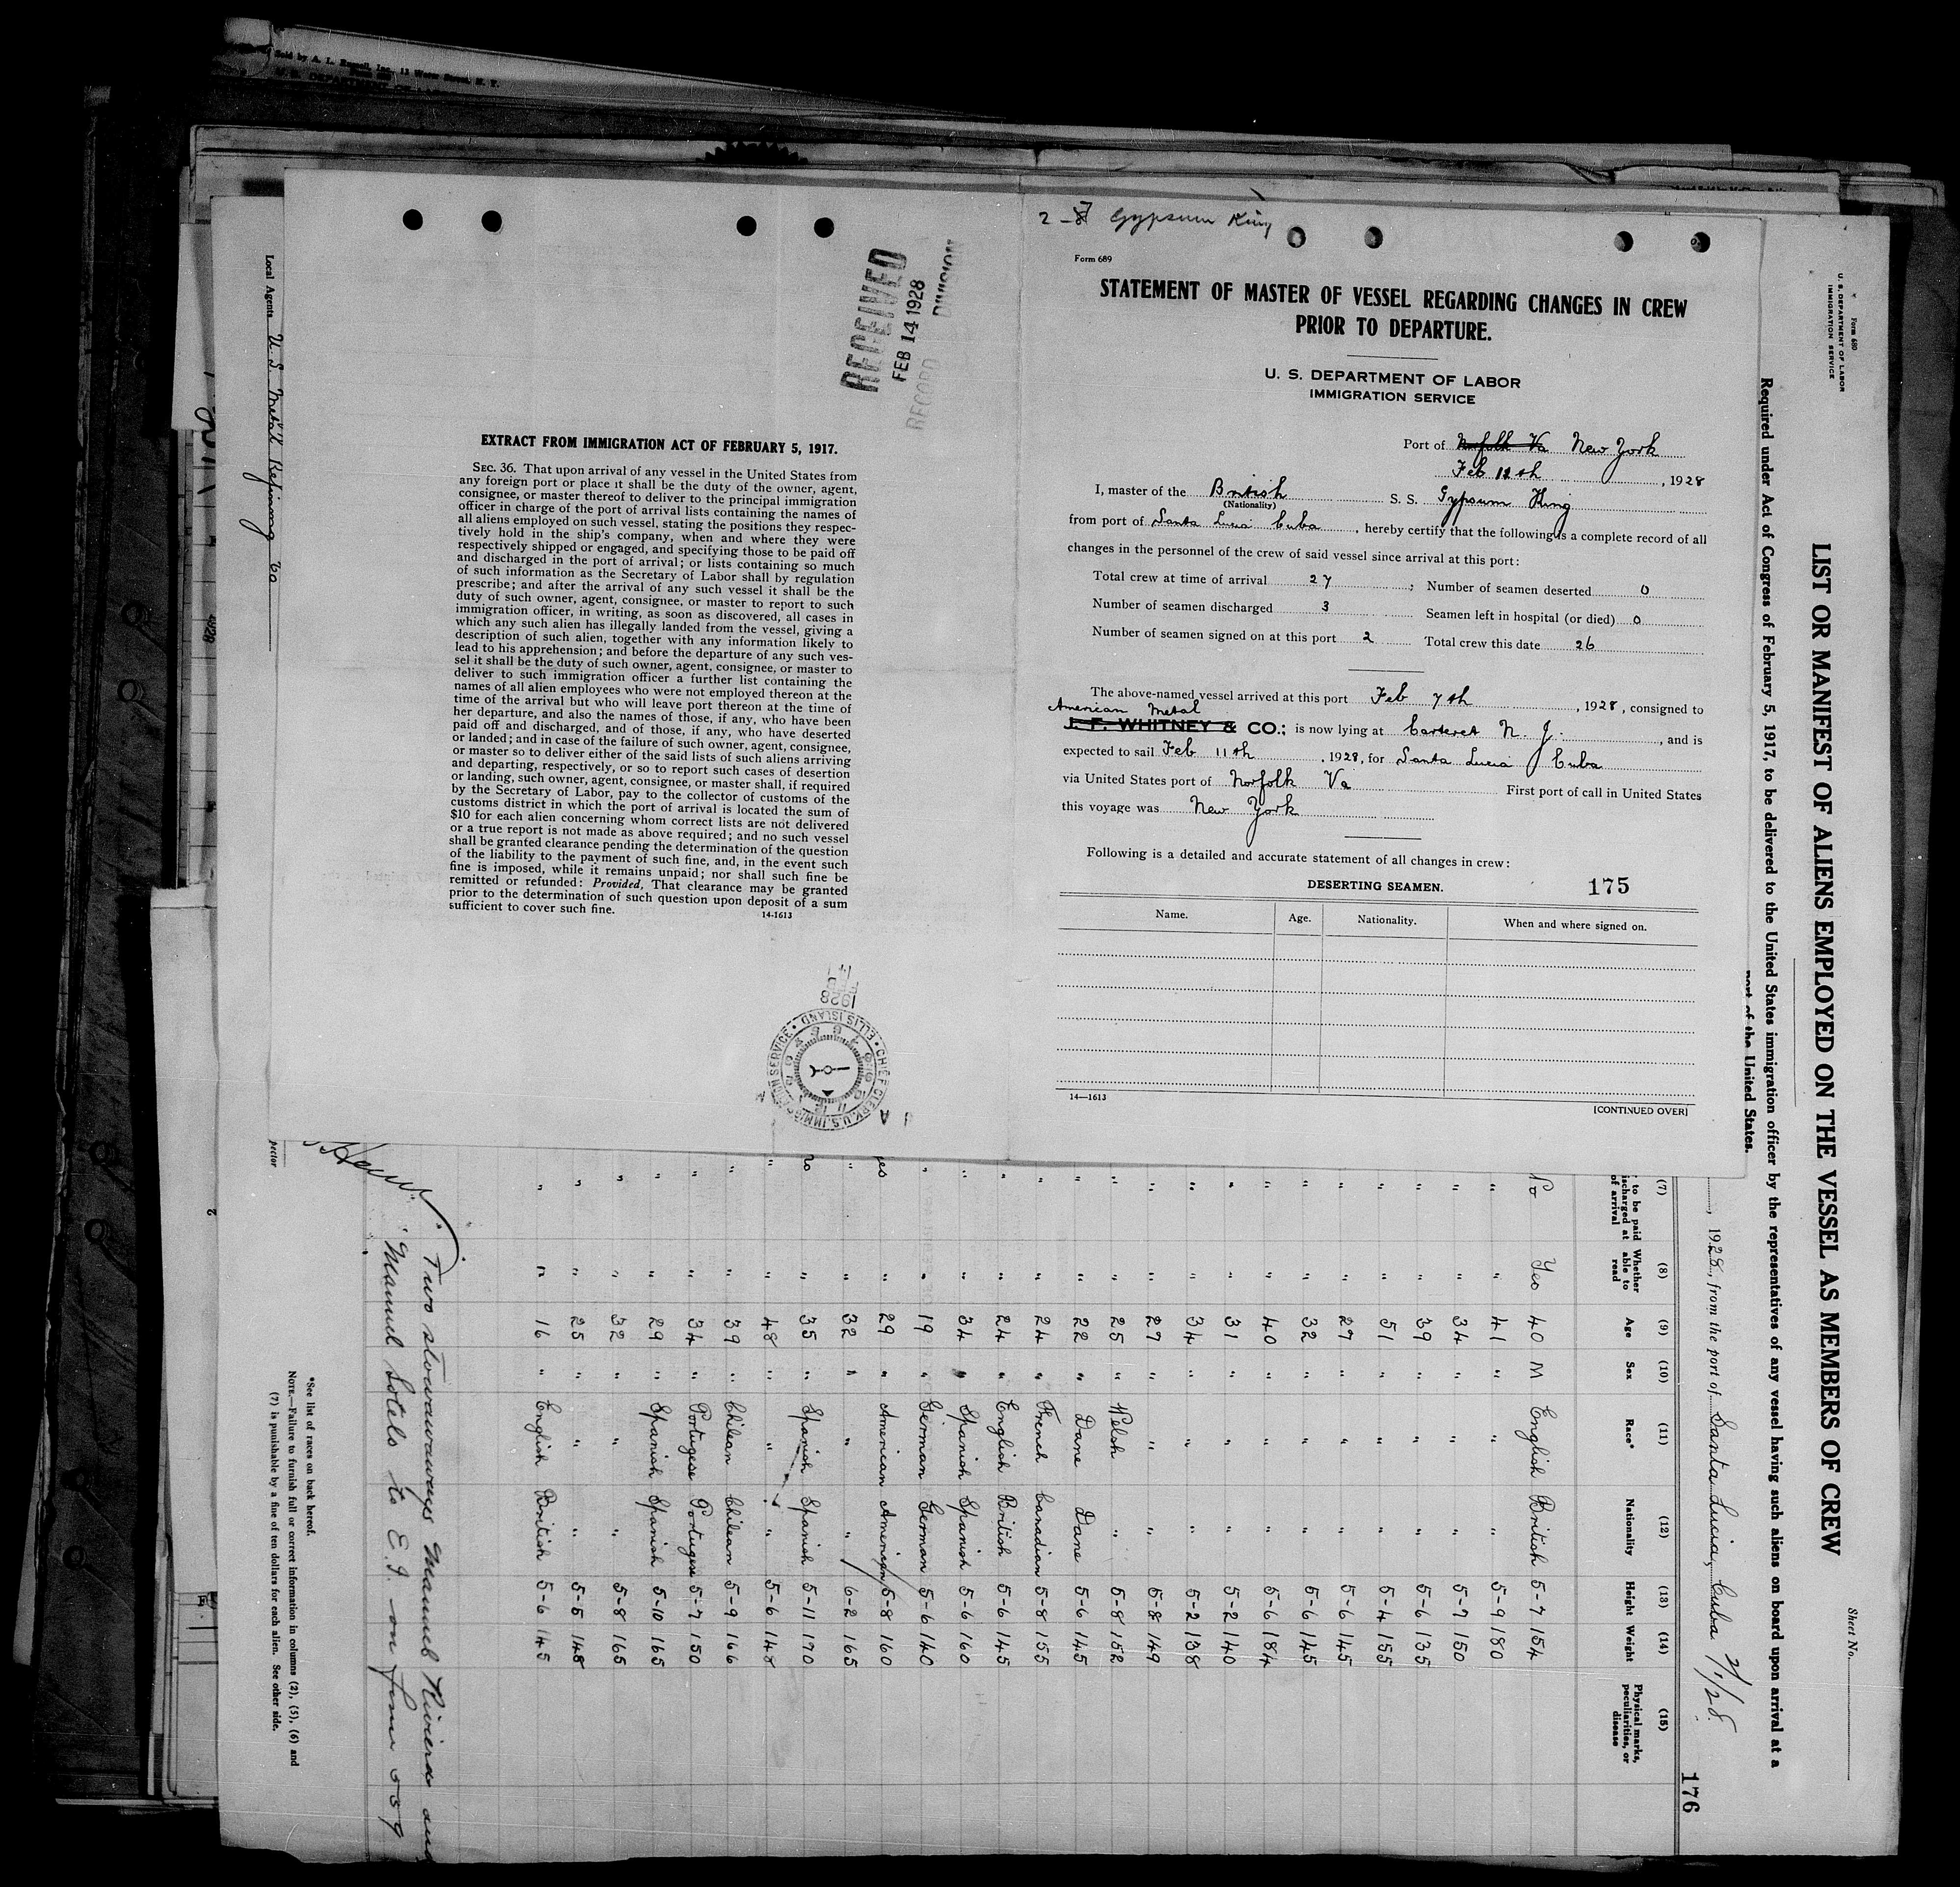 Sold by A. L. Russell, Inc., 12 Water Street, N. Y.
Local Agents U. S. Metals Refining Co
RECEIVED
FEB 14 1928
RECORD DIVISION
EXTRACT FROM IMMIGRATION ACT OF FEBRUARY 5, 1917.
SEC. 36. That upon arrival of any vessel in the United States from
any foreign port or place it shall be the duty of the owner, agent,
consignee, or master thereof to deliver to the principal immigration
officer in charge of the port of arrival lists containing the names of
all aliens employed on such vessel, stating the positions they respec-
tively hold in the ship's company, when and where they were
respectively shipped or engaged, and specifying those to be paid off
and discharged in the port of arrival; or lists containing so much
of such information as the Secretary of Labor shall by regulation
prescribe; and after the arrival of any such vessel it shall be the
duty of such owner, agent, consignee, or master to report to such
immigration officer, in writing, as soon as discovered, all cases in
which any such alien has illegally landed from the vessel, giving a
description of such alien, together with any information likely to
lead to his apprehension; and before the departure of any such ves-
sel it shall be the duty of such owner, agent, consignee, or master to
deliver to such immigration officer a further list containing the
names of all alien employees who were not employed thereon at the
time of the arrival but who will leave port thereon at the time of
her departure, and also the names of those, if any, who have been
paid off and discharged, and of those, if any, who have deserted
or landed; and in case of the failure of such owner, agent, consignee,
or master so to deliver either of the said lists of such aliens arriving
and departing, respectively, or so to report such cases of desertion
or landing, such owner, agent, consignee, or master shall, if required
by the Secretary of Labor, pay to the collector of customs of the
customs district in which the port of arrival is located the sum of
$10 for each alien concerning whom correct lists are not delivered
or a true report is not made as above required; and no such vessel
shall be granted clearance pending the determination of the question
of the liability to the payment of such fine, and, in the event such
fine is imposed, while it remains unpaid; nor shall such fine be
remitted or refunded: Provided, That clearance may be granted
prior to the determination of such question upon deposit of a sum
sufficient to cover such fine.
14-1613
1928
FEB
14
CHIEF CLERK, U.S. IMMIGRATION SERVICE • ELLIS ISLAND •
2-7 Gypsum King
Form 689
STATEMENT OF MASTER OF VESSEL REGARDING CHANGES IN CREW
PRIOR TO DEPARTURE.
U. S. DEPARTMENT OF LABOR
IMMIGRATION SERVICE
Port of Norfolk Va New York
Feb 12th, 1928
I, master of the British S. S. Gypsum King
(Nationality)
from port of Santa Lucia Cuba, hereby certify that the following is a complete record of all
changes in the personnel of the crew of said vessel since arrival at this port:
Total crew at time of arrival 27; Number of seamen deserted 0
Number of seamen discharged 3 Seamen left in hospital (or died) 0
Number of seamen signed on at this port 2 Total crew this date 26
The above-named vessel arrived at this port Feb 7th, 1928, consigned to
American Metal
J. F. WHITNEY & CO.; is now lying at Carteret N. J., and is
expected to sail Feb 11th, 1928, for Santa Lucia Cuba
via United States port of Norfolk Va First port of call in United States
this voyage was New York
Following is a detailed and accurate statement of all changes in crew:
DESERTING SEAMEN. 175
Name. Age. Nationality. When and where signed on.
14—1613
[CONTINUED OVER]
Form 680
U. S. DEPARTMENT OF LABOR
IMMIGRATION SERVICE
Sheet No.
LIST OR MANIFEST OF ALIENS EMPLOYED ON THE VESSEL AS MEMBERS OF CREW
Required under Act of Congress of February 5, 1917, to be delivered to the United States immigration officer by the representatives of any vessel having such aliens on board upon arrival at a
port of the United States.
, 1928, from the port of Santa Lucia, Cuba 2/1/28
176
(7) (8) (9) (10) (11) (12) (13) (14) (15)
to be paid discharged at of arrival Whether able to read Age Sex Race* Nationality Height Weight Physical marks, peculiarities, or disease
No Yes 40 M English British 5-7 154
" " 41 " " " 5-9 180
" " 34 " " " 5-7 150
" " 39 " " " 5-6 135
" " 51 " " " 5-4 155
" " 27 " " " 5-6 145
" " 32 " " " 5-6 145
" " 40 " " " 5-6 184
" " 31 " " " 5-2 140
" " 34 " " " 5-2 138
" " 27 " " " 5-8 149
" " 25 " Welsh " 5-8 152
" " 22 " Dane Dane 5-6 145
" " 24 " French Canadian 5-8 155
" " 24 " English British 5-6 145
" " 34 " Spanish Spanish 5-6 160
" " 19 " German German 5-6 140
yes " 29 " American American 5-8 160
" " 32 " " " 6-2 165
no " 35 " Spanish Spanish 5-11 170
" " 48 " " " 5-6 148
" " 39 " Chilean Chilean 5-9 166
" " 34 " Portugese Portugese 5-7 150
" " 29 " Spanish Spanish 5-10 165
" " 32 " " " 5-8 165
" " 25 " " " 5-5 148
" " 16 " English British 5-6 145
Two stowaways Manuel Riviera and
Manuel Sotels to E.I. on form 559
*See list of races on back hereof.
NOTE.—Failure to furnish full or correct information in columns (2), (5), (6) and
(7) is punishable by a fine of ten dollars for each alien. See other side.